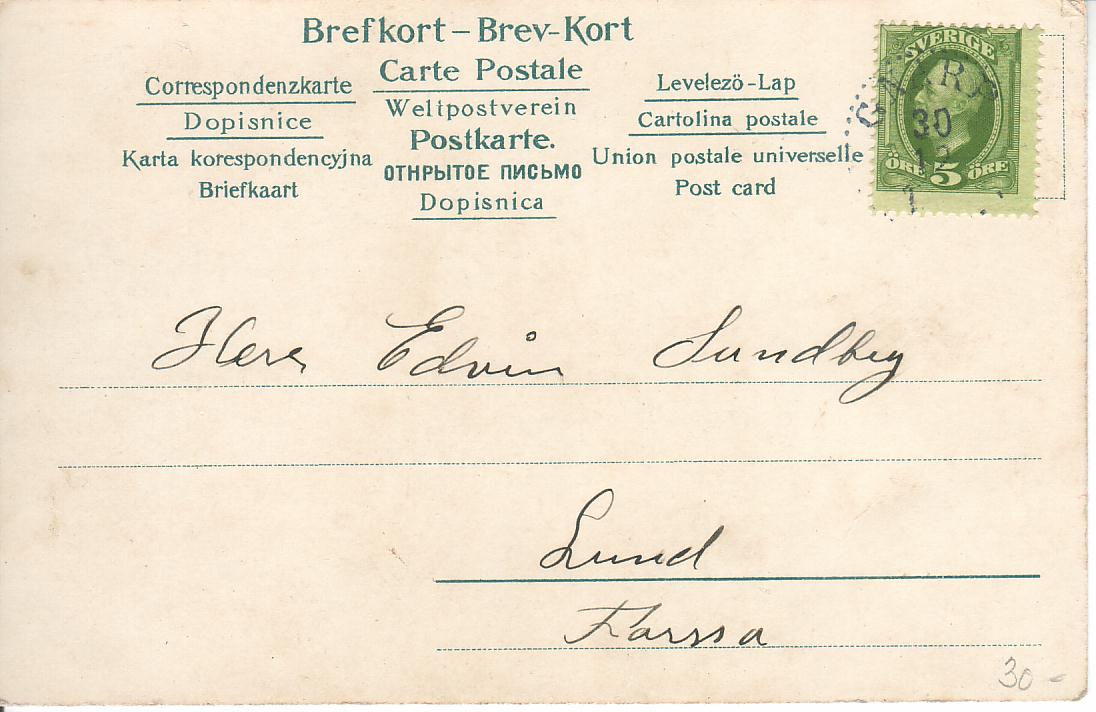 Brefkort – Brev-Kort
Carte Postale
Weltpostverein
Postkarte.
ОТКРЫТОЕ ПИСЬМО
Dopisnica
Correspondenzkarte
Dopisnice
Karta korespondencyjna
Briefkaart
Levelezö-Lap
Cartolina postale
Union postale universelle
Post card
SVERIGE
ÖRE 5 ÖRE
30
12
Herr Edvin Sundberg
Lund
30 -